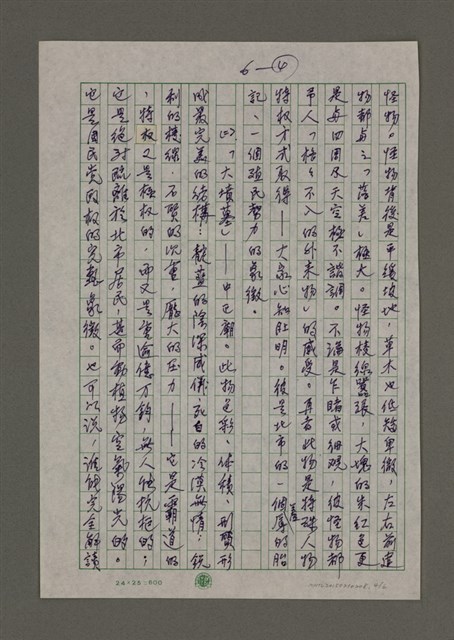 6—④
怪物。怪物背後是平緩坡地，草木也低矮卑微，左右前建
物都與之「落差」極大。怪物稜線囂張，大塊的朱紅色更
是與四周及天空極不諧調。不論是乍睹或細觀，彼怪物都
予人「格格不入的外來物」的感受。再者此物是特殊人物
特权才式取得——大家心知肚明。彼是北市的一個羞辱的胎
記、一個殖民勢力的象徵。
㈡「大墳墓」——中正廟。此物色彩、体積、形質形
成最完美的結構：靛藍的陰深威儀，死白的冷漠無情，銳
利的稜線，石質的沈重，龐大的压力——它是霸道的
，特权又是極权的，而又是重逾億万鈞，無人能抗拒的；
它是絕对疏離於北市居民，甚而動植物空氣陽光的。
它是國民党因权的完整象徵。也可以說，誰能完全解讀
24×25=600